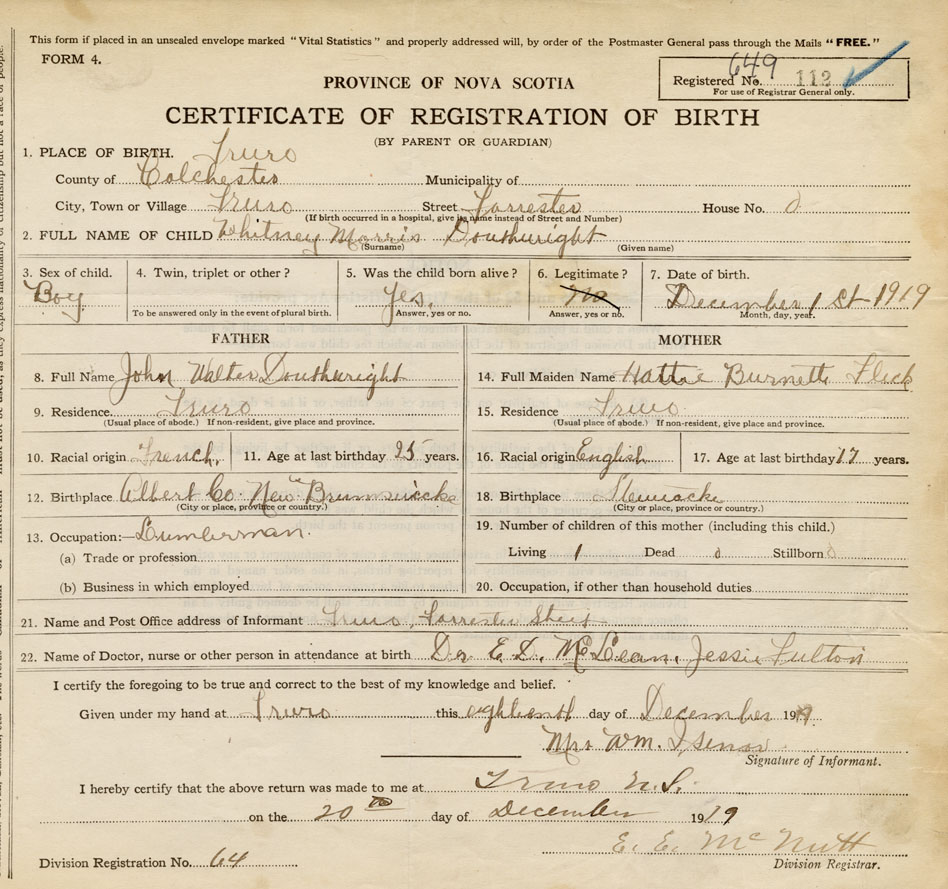 This form if placed in an unsealed envelope marked "Vital Statistics" and properly addressed will, by order of the Postmaster General pass through the Mails "FREE."
FORM 4.
649
Registered No. 112
For use of Registrar General only.
PROVINCE OF NOVA SCOTIA
CERTIFICATE OF REGISTRATION OF BIRTH
(BY PARENT OR GUARDIAN)
1. PLACE OF BIRTH. Truro
County of Colchester Municipality of
City, Town or Village Truro Street Forrester House No. 0
(If birth occurred in a hospital, give its name instead of Street and Number)
2. FULL NAME OF CHILD Whitney Morris Douthwright
(Surname) (Given name)
3. Sex of child. 4. Twin, triplet or other? 5. Was the child born alive? 6. Legitimate? 7. Date of birth.
Boy Yes. no December 1 St 1919
To be answered only in the event of plural birth. Answer, yes or no. Answer, yes or no. Month, day, year.
FATHER
8. Full Name John Walter Douthwright
9. Residence. Truro
(Usual place of abode.) If non-resident, give place and province.
10. Racial origin French. 11. Age at last birthday 25 years.
12. Birthplace Albert Co. New Brunswicke
(City or place, province or country.)
13. Occupation:— Lumberman.
(a) Trade or profession
(b) Business in which employed
MOTHER
14. Full Maiden Name Hattie Burnett Fleck
15. Residence Truro
(Usual place of abode.) If non-resident, give place and province.
16. Racial origin English 17. Age at last birthday 17 years.
18. Birthplace
(City or place, province or country.)
19. Number of children of this mother (including this child.)
Living 1 Dead 0 Stillborn 0
20. Occupation, if other than household duties
21. Name and Post Office address of Informant Truro, Forrester Street
22. Name of Doctor, nurse or other person in attendance at birth Dr E. D. McLean, Jessie Fulton
I certify the foregoing to be true and correct to the best of my knowledge and belief.
Given under my hand at Truro this eighteenth day of December 1919
Mrs Wm.
Signature of Informant.
I hereby certify that the above return was made to me at Truro N.S.
on the 20th day of December 1919
E. E. McNutt
Division Registration No. 64 Division Registrar.